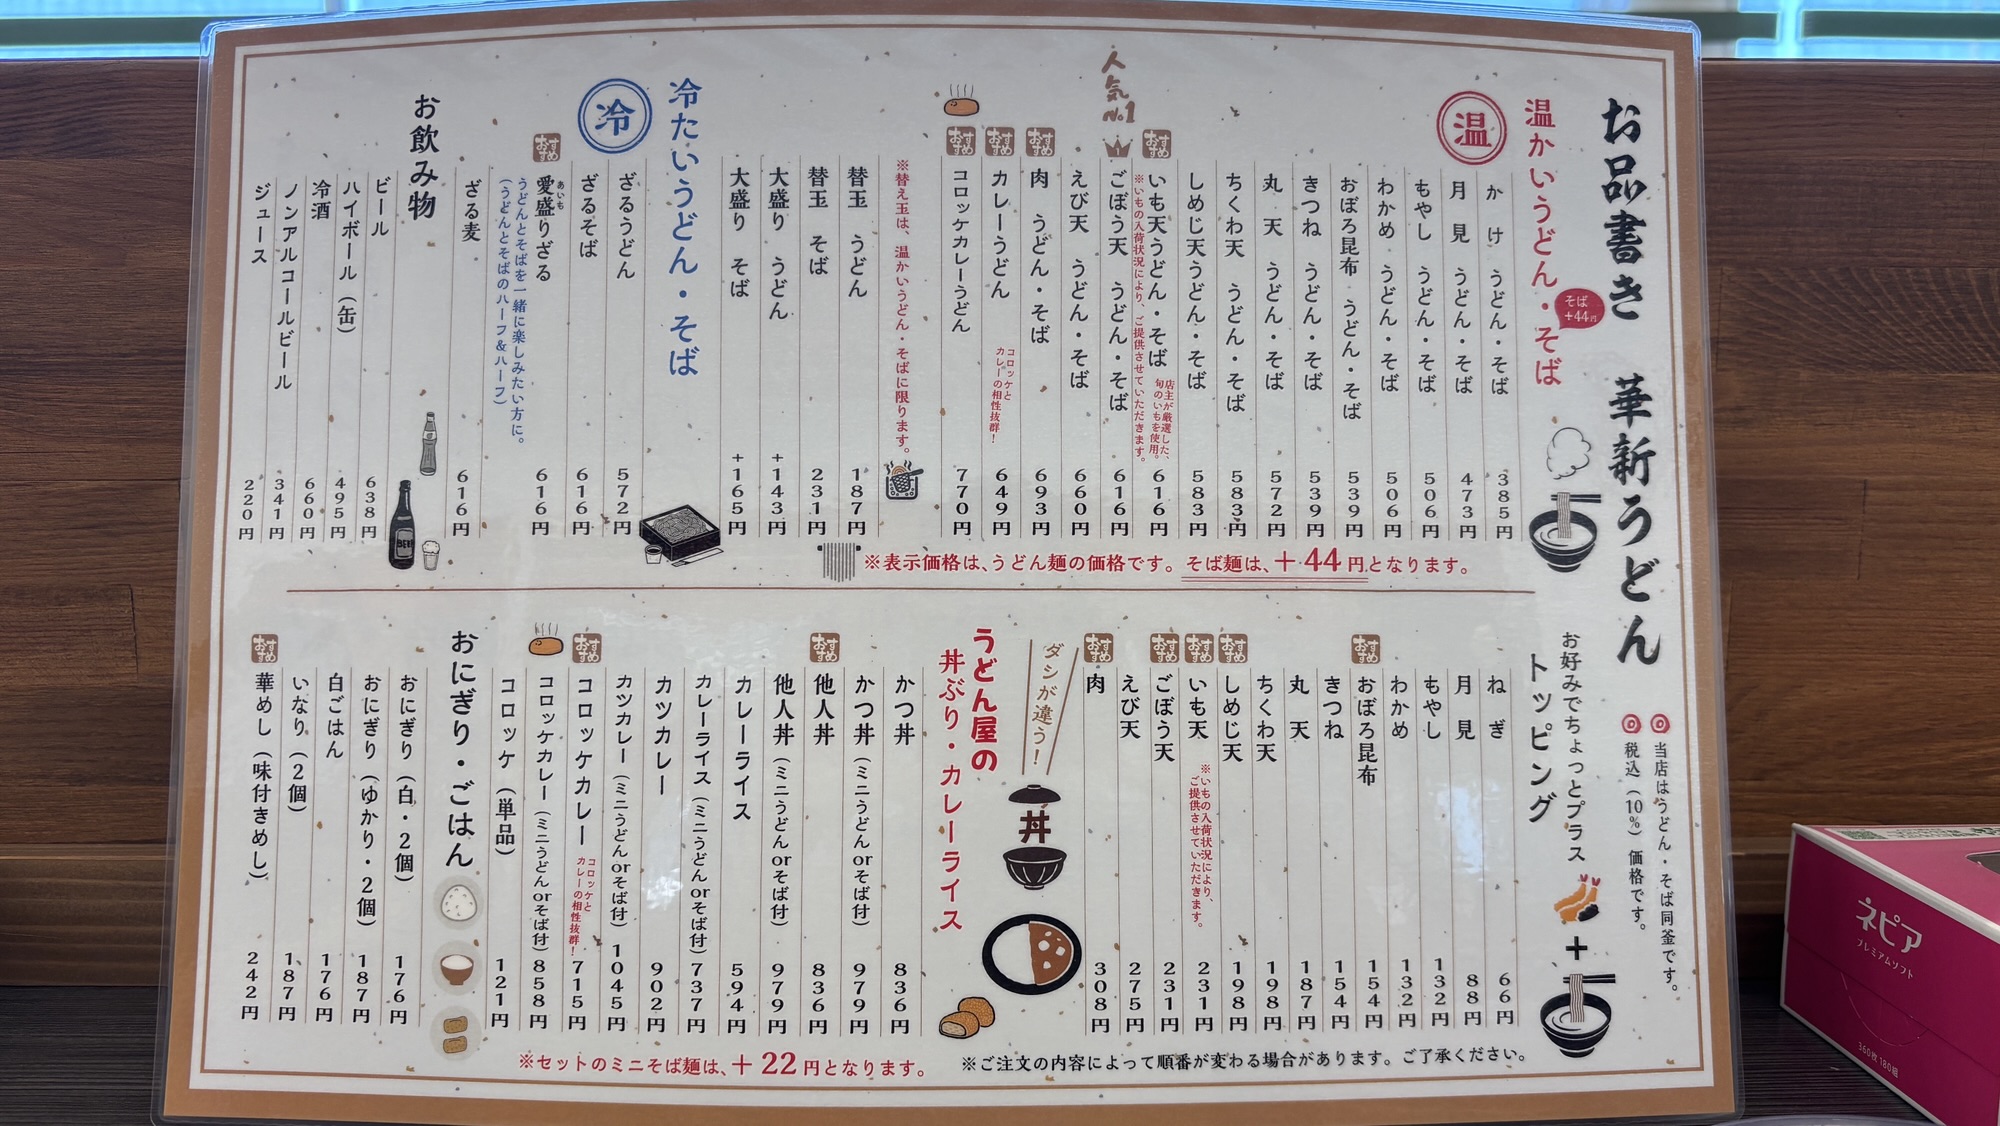 お品書き 華新うどん
◎当店はうどん・そば同釜です。
◎税込(10%)価格です。
温かいうどん・そば
そば+44円
温
かけ うどん・そば 385円
月見 うどん・そば 473円
もやし うどん・そば 506円
わかめ うどん・そば 506円
おぼろ昆布 うどん・そば 539円
きつね うどん・そば 539円
丸天 うどん・そば 572円
ちくわ天 うどん・そば 583円
しめじ天うどん・そば 583円
おすすめ
いも天うどん・そば 616円
店主が厳選した、
旬のいもを使用。
※いもの入荷状況により、ご提供させていただきます。
人気No.1
ごぼう天 うどん・そば 616円
えび天 うどん・そば 660円
おすすめ
肉 うどん・そば 693円
おすすめ
カレーうどん 649円
コロッケと
カレーの相性抜群!
おすすめ
コロッケカレーうどん 770円
※替え玉は、温かいうどん・そばに限ります。
替玉 うどん 187円
替玉 そば 231円
大盛り うどん +143円
大盛り そば +165円
※表示価格は、うどん麺の価格です。そば麺は、+44円となります。
冷たいうどん・そば
冷
ざるうどん 572円
ざるそば 616円
おすすめ
愛盛りざる 616円
あいも
うどんとそばを一緒に楽しみたい方に。
(うどんとそばのハーフ&ハーフ)
ざる麦 616円
お飲み物
ビール 638円
ハイボール(缶) 495円
冷酒 660円
ノンアルコールビール 341円
ジュース 220円
BEER
お好みでちょっとプラス
トッピング
+
ねぎ 66円
月見 88円
もやし 132円
わかめ 132円
おすすめ
おぼろ昆布 154円
きつね 154円
丸天 187円
ちくわ天 198円
おすすめ
しめじ天 198円
おすすめ
いも天 231円
※いもの入荷状況により、
ご提供させていただきます。
おすすめ
ごぼう天 231円
えび天 275円
おすすめ
肉 308円
ダシが違う!
丼
うどん屋の
丼ぶり・カレーライス
かつ丼 836円
かつ丼(ミニうどんorそば付) 979円
おすすめ
他人丼 836円
他人丼(ミニうどんorそば付) 979円
カレーライス 594円
カレーライス(ミニうどんorそば付) 737円
カツカレー 902円
カツカレー(ミニうどんorそば付) 1045円
おすすめ
コロッケカレー 715円
コロッケと
カレーの相性抜群!
コロッケカレー(ミニうどんorそば付) 858円
コロッケ(単品) 121円
おにぎり・ごはん
おにぎり(白・2個) 176円
おにぎり(ゆかり・2個) 187円
白ごはん 176円
いなり(2個) 187円
おすすめ
華めし(味付きめし) 242円
※セットのミニそば麺は、+22円となります。
※ご注文の内容によって順番が変わる場合があります。ご了承ください。
ネピア
プレミアムソフト
360枚180組